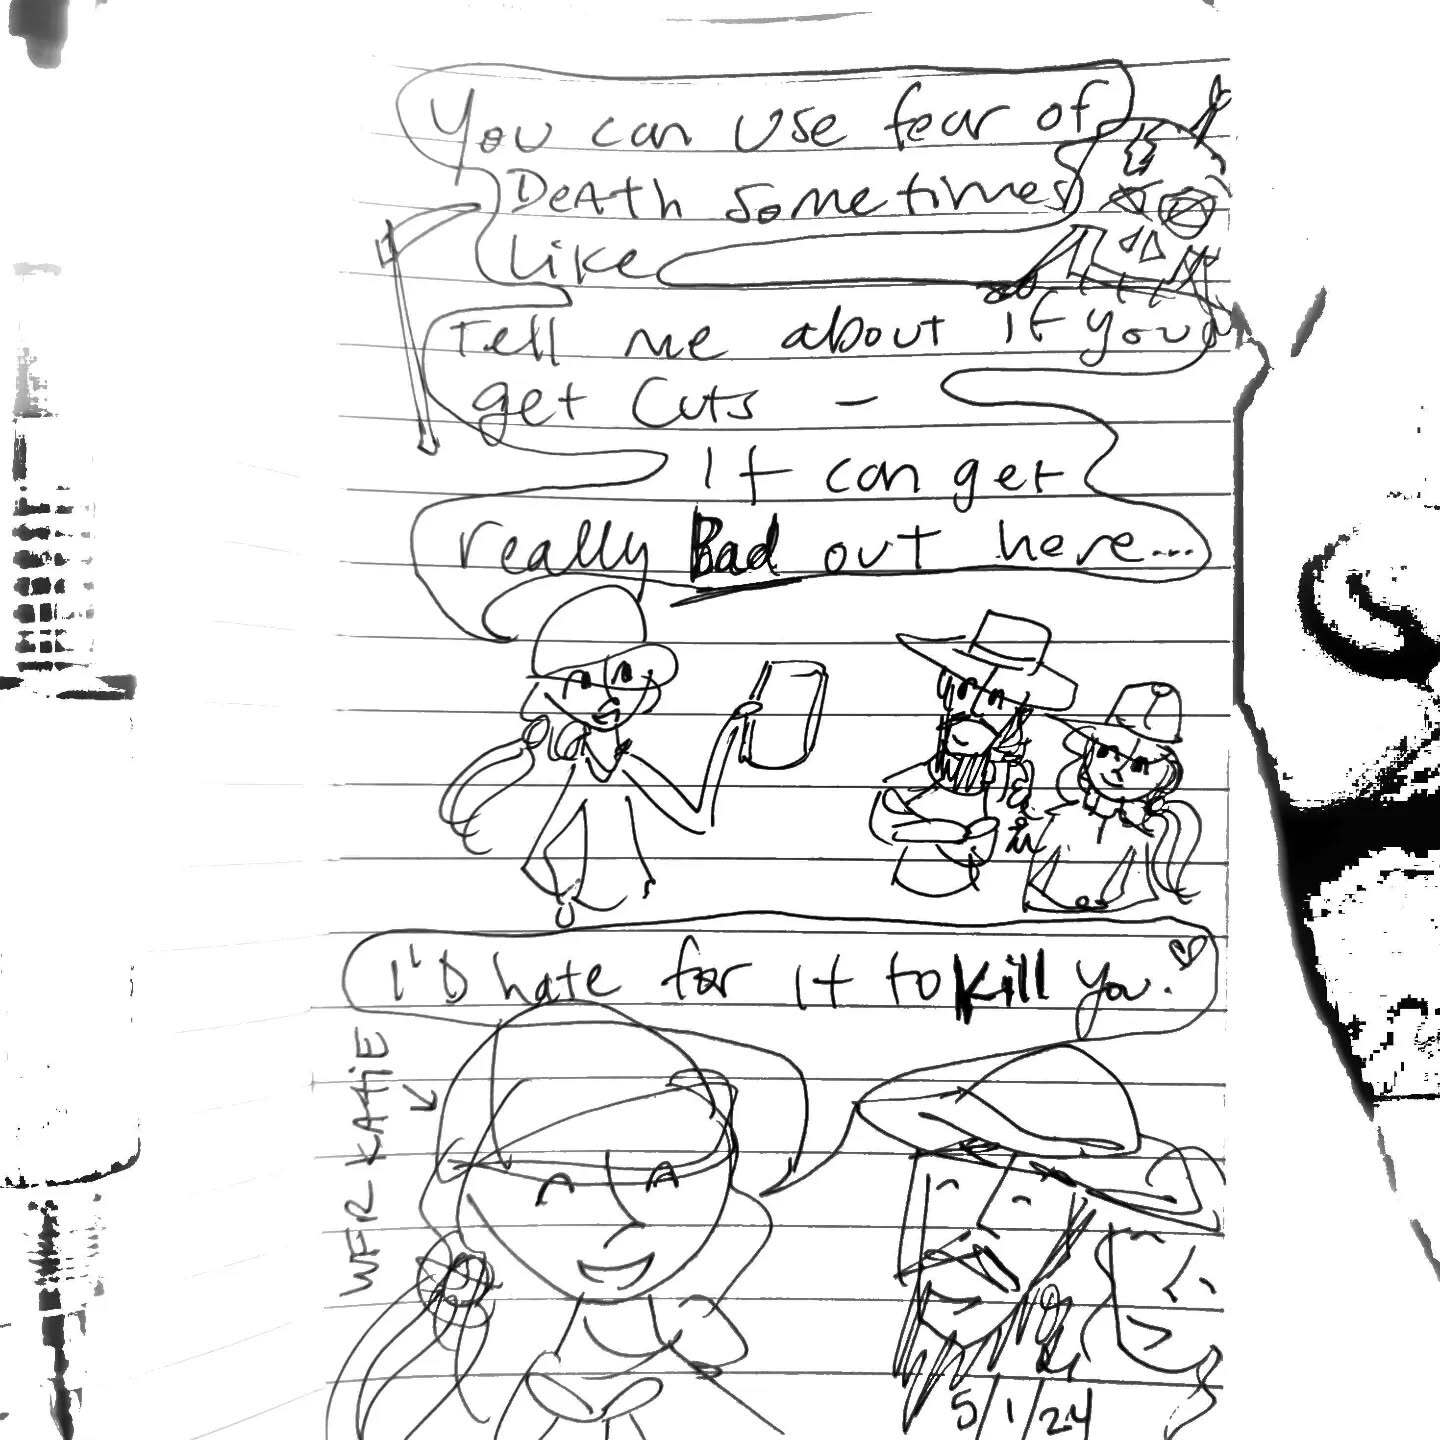 You can use fear of
Death sometimes
like
Tell me about if you
get cuts -
It can get
really Bad out here...
I'D hate for it to kill you. ♡
WFR KATiE
5/1/24